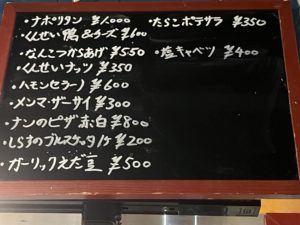 ・ナポリタン ¥1,000
・くんせい鴨&チーズ ¥600
・なんこつからあげ ¥550
・くんせいナッツ ¥350
・ハモンセラーノ ¥600
・メンマ・ザーサイ ¥300
・ナンのピザ 赤・白 ¥800
・しらすのブルスケッタ 1ケ ¥200
・ガーリックえだ豆 ¥500
・たらこポテサラ ¥350
・塩キャベツ ¥400